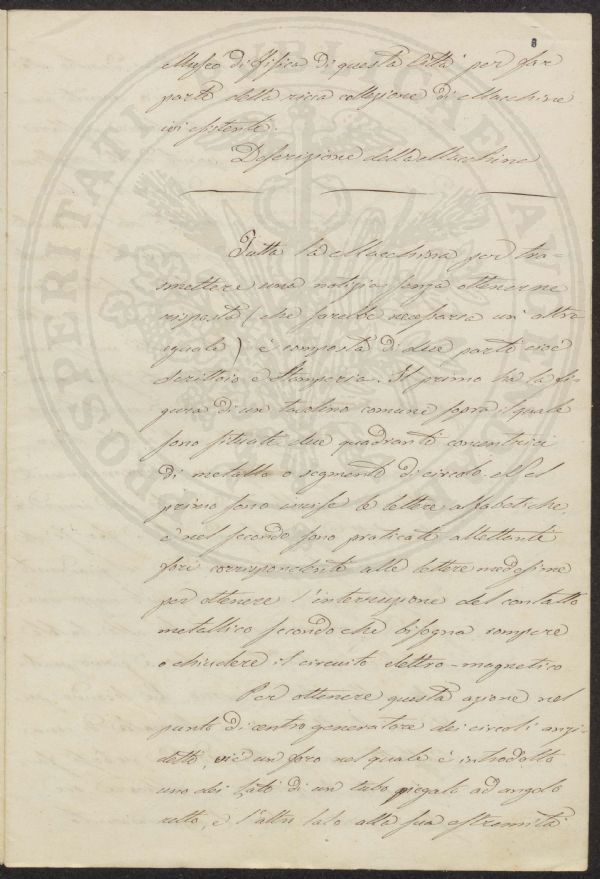 8
Museo di Fisica di questa Città per far
parte della ricca collezione di Macchine
ivi esistenti.
Descrizione della Macchina
Tutta la Macchina per tra-
smettere una notizia senza ottenerne
risposta (che sarebbe necessaria un' altra
eguale) è composta di due parti cioè
Scrittoio e Stamperia. Il primo ha la fi-
gura di un tavolino comune sopra il quale
sono situati due quadranti concentrici
di metallo o segmenti di circolo. Nel
primo sono incise le lettere alfabetiche,
e nel secondo sono praticati altettanti
fori corrispondenti alle lettere medesime
per ottenere l'interruzione del contatto
metallico secondo che bisogna rompere
o chiudere il circuito elettro-magnetico
Per ottenere questa azione nel
punto di centro generatore dei circoli anzi-
detti, vi è un foro nel quale è introdotto
uno dei lati di un tubo piegato ad angolo
retto, e l'altro lato alla sua estremità
PROSPERITATI PUBLICAE AVGENDAE